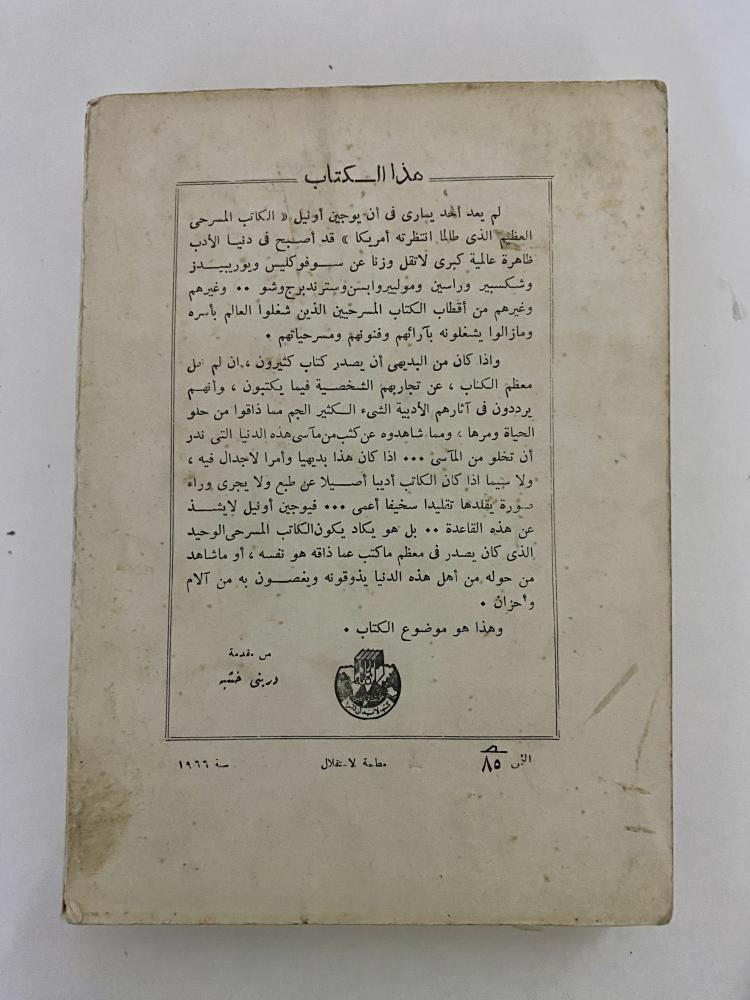 هذا الـكتاب
لم يعد أحد يمارى فى أن يوجين أونيل « الكاتب المسرحى
العظيم الذى طالما انتظرته أمريكا » قد أصبح فى دنيا الأدب
ظاهرة عالمية كبرى لاتقل وزنا عن سـوفوكليس ويوريبيـدز
وشكسبير وراسين وموليير وابسن وسترندبرج وشو ٠٠ وغيرهم
وغيرهم من أقطاب الكتاب المسرحيين الذين شغلوا العالم بأسره
ومازالوا يشغلونه بآرائهم وفنونهم ومسرحياتهم ٠
واذا كان من البديهى أن يصدر كتاب كثيرون ، ان لم
معظم الكتاب ، عن تجاربهم الشخصـية فيما يكتبون ، وأنهـم
يرددون فى آثارهم الأدبية الشىء الـكثير الجم مما ذاقوا من حلو
الحياة ومرها ، ومما شاهدوه عن كثب من مآسى هذه الدنيا التى ندر
أن تخلو من المآسى ٠٠٠ اذا كان هذا بديهيا وأمرا لاجدال فيه ،
ولا سيما اذا كان الكاتب أديبا أصـيلا عن طبع ولا يجرى وراء
صورة يقلدها تقليدا سخيفا أعمى ٠٠٠ فيوجين أونيل لايشـذ
عن هذه القاعدة ٠٠ بل هو يكاد يكون الكاتب المسرحى الوحيد
الذى كان يصدر فى معظم ماكتب عما ذاقه هو نفسه ، أو ماشاهد
من حوله من أهل هذه الدنيا يذوقونه ويغصـون به من آلام
وأحزان ٠
وهذا هو موضوع الكتاب ٠
من مقدمة
درينى خشبه
الثمن ٨٥
مطبعة الاستقلال
سنة ١٩٦٦